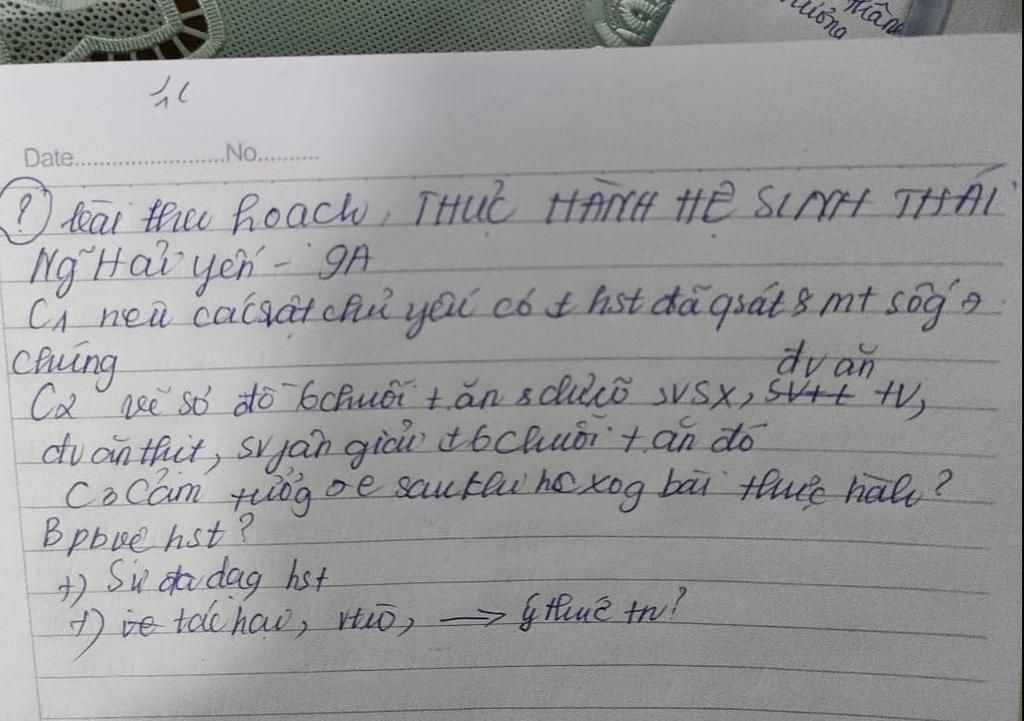 Hưởng Thần
Date........................No..........
? bài thu hoạch, THỰC HÀNH HỆ SINH THÁI
Ng~ Hải yến - 9A
C1 nêu các svật chủ yếu có t hst đã qsát & mt sôg
chúng
đv ăn
C2 vẽ sơ đồ chuỗi t ăn SVSX, SVtt tv,
đv ăn thịt, SV fân giải chuỗi t ăn đó
C3 Cảm tưởg e sau khi hc xog bài thực hành?
B pbvệ hst?
+) Sự đa dạg hst
+) ve tác hại, vtrò, → ý thức tn?